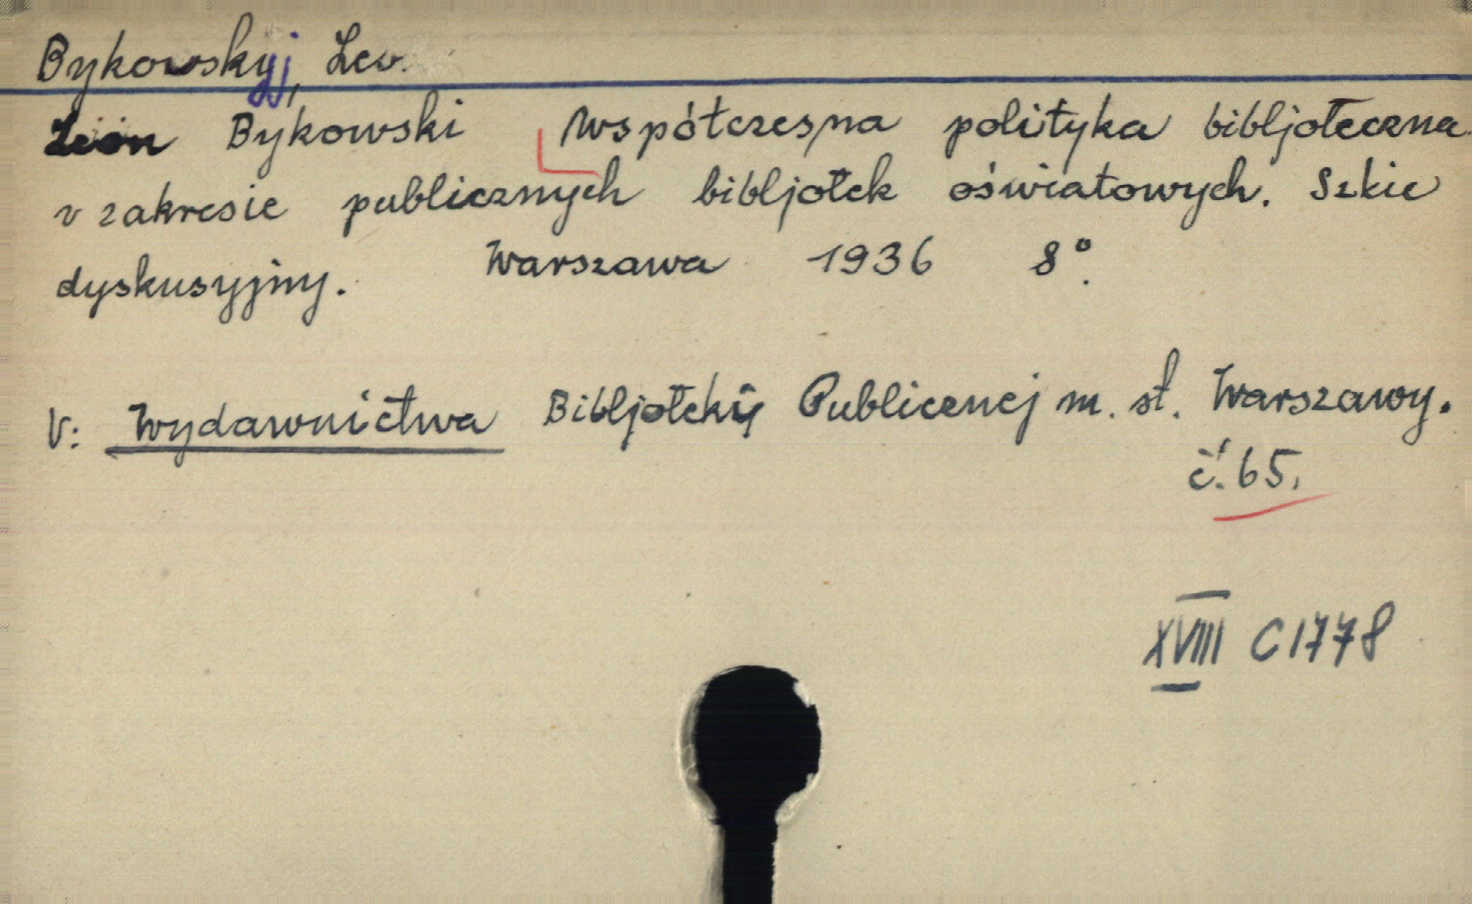 Bykowskyj, Lev.
Leon Bykowski Współczesna polityka bibljoteczna
v zakresie publicznych bibljotek oświatowych. Szkic
dyskusyjny. Warszawa 1936 8°.
V: Wydawnictwa Bibljoteki Publicznej m. st. Warszawy.
č. 65.
XVIII C 1778